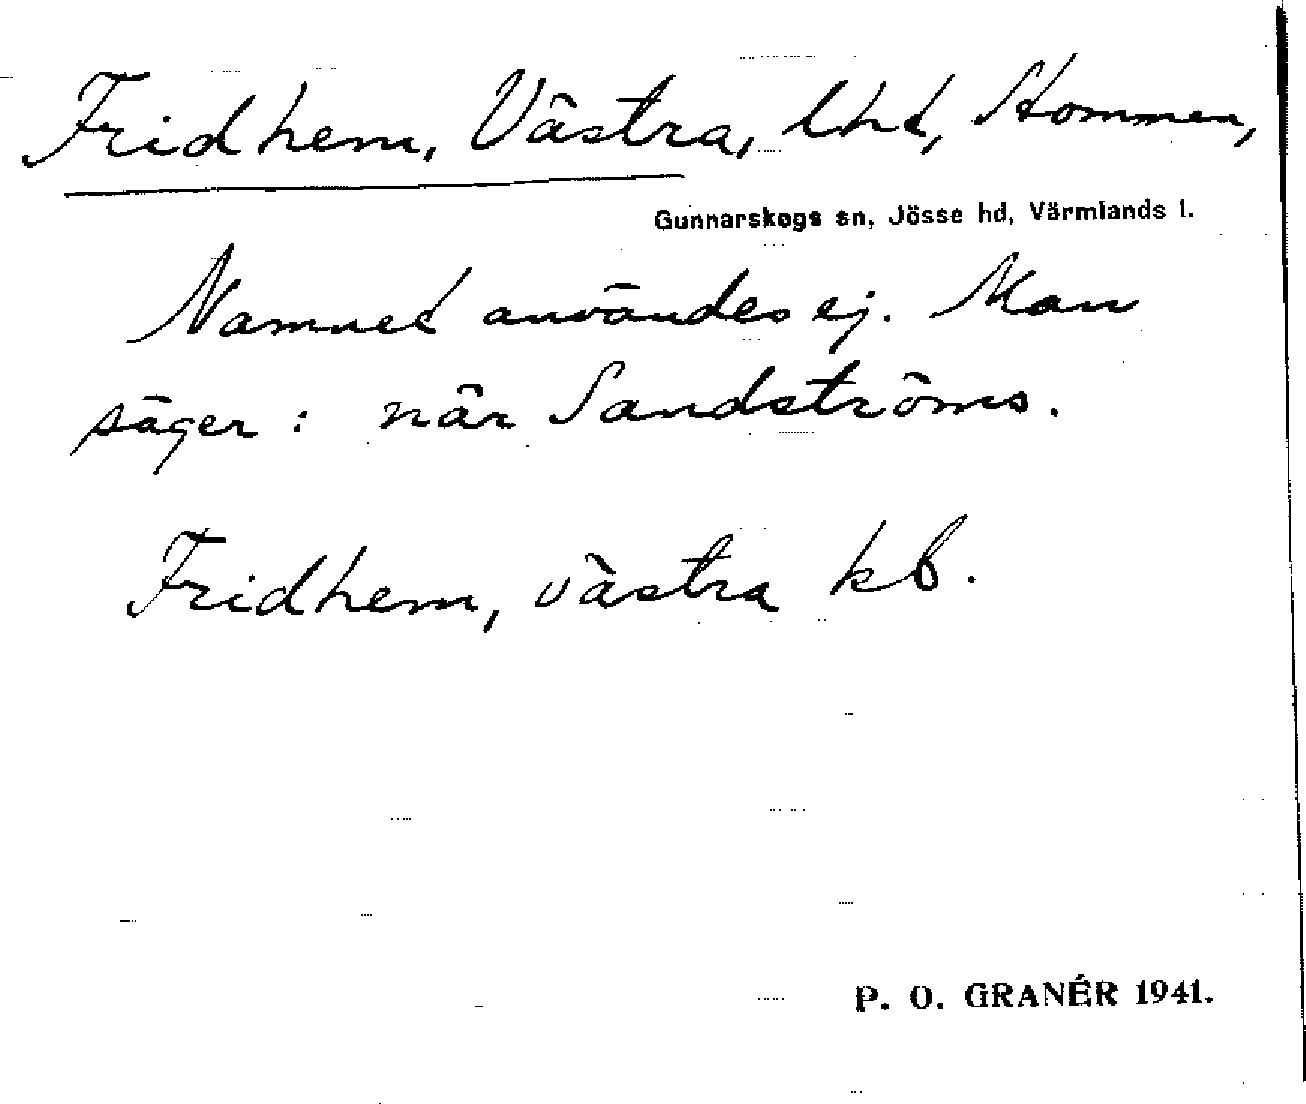 Fridhem, Västra, lht, Stommen,
Gunnarskogs sn, Jösse hd, Värmlands l.
Namnet användes ej. Man
säger: när Sandströms.
Fridhem, västra kb.
P. O. GRANÉR 1941.